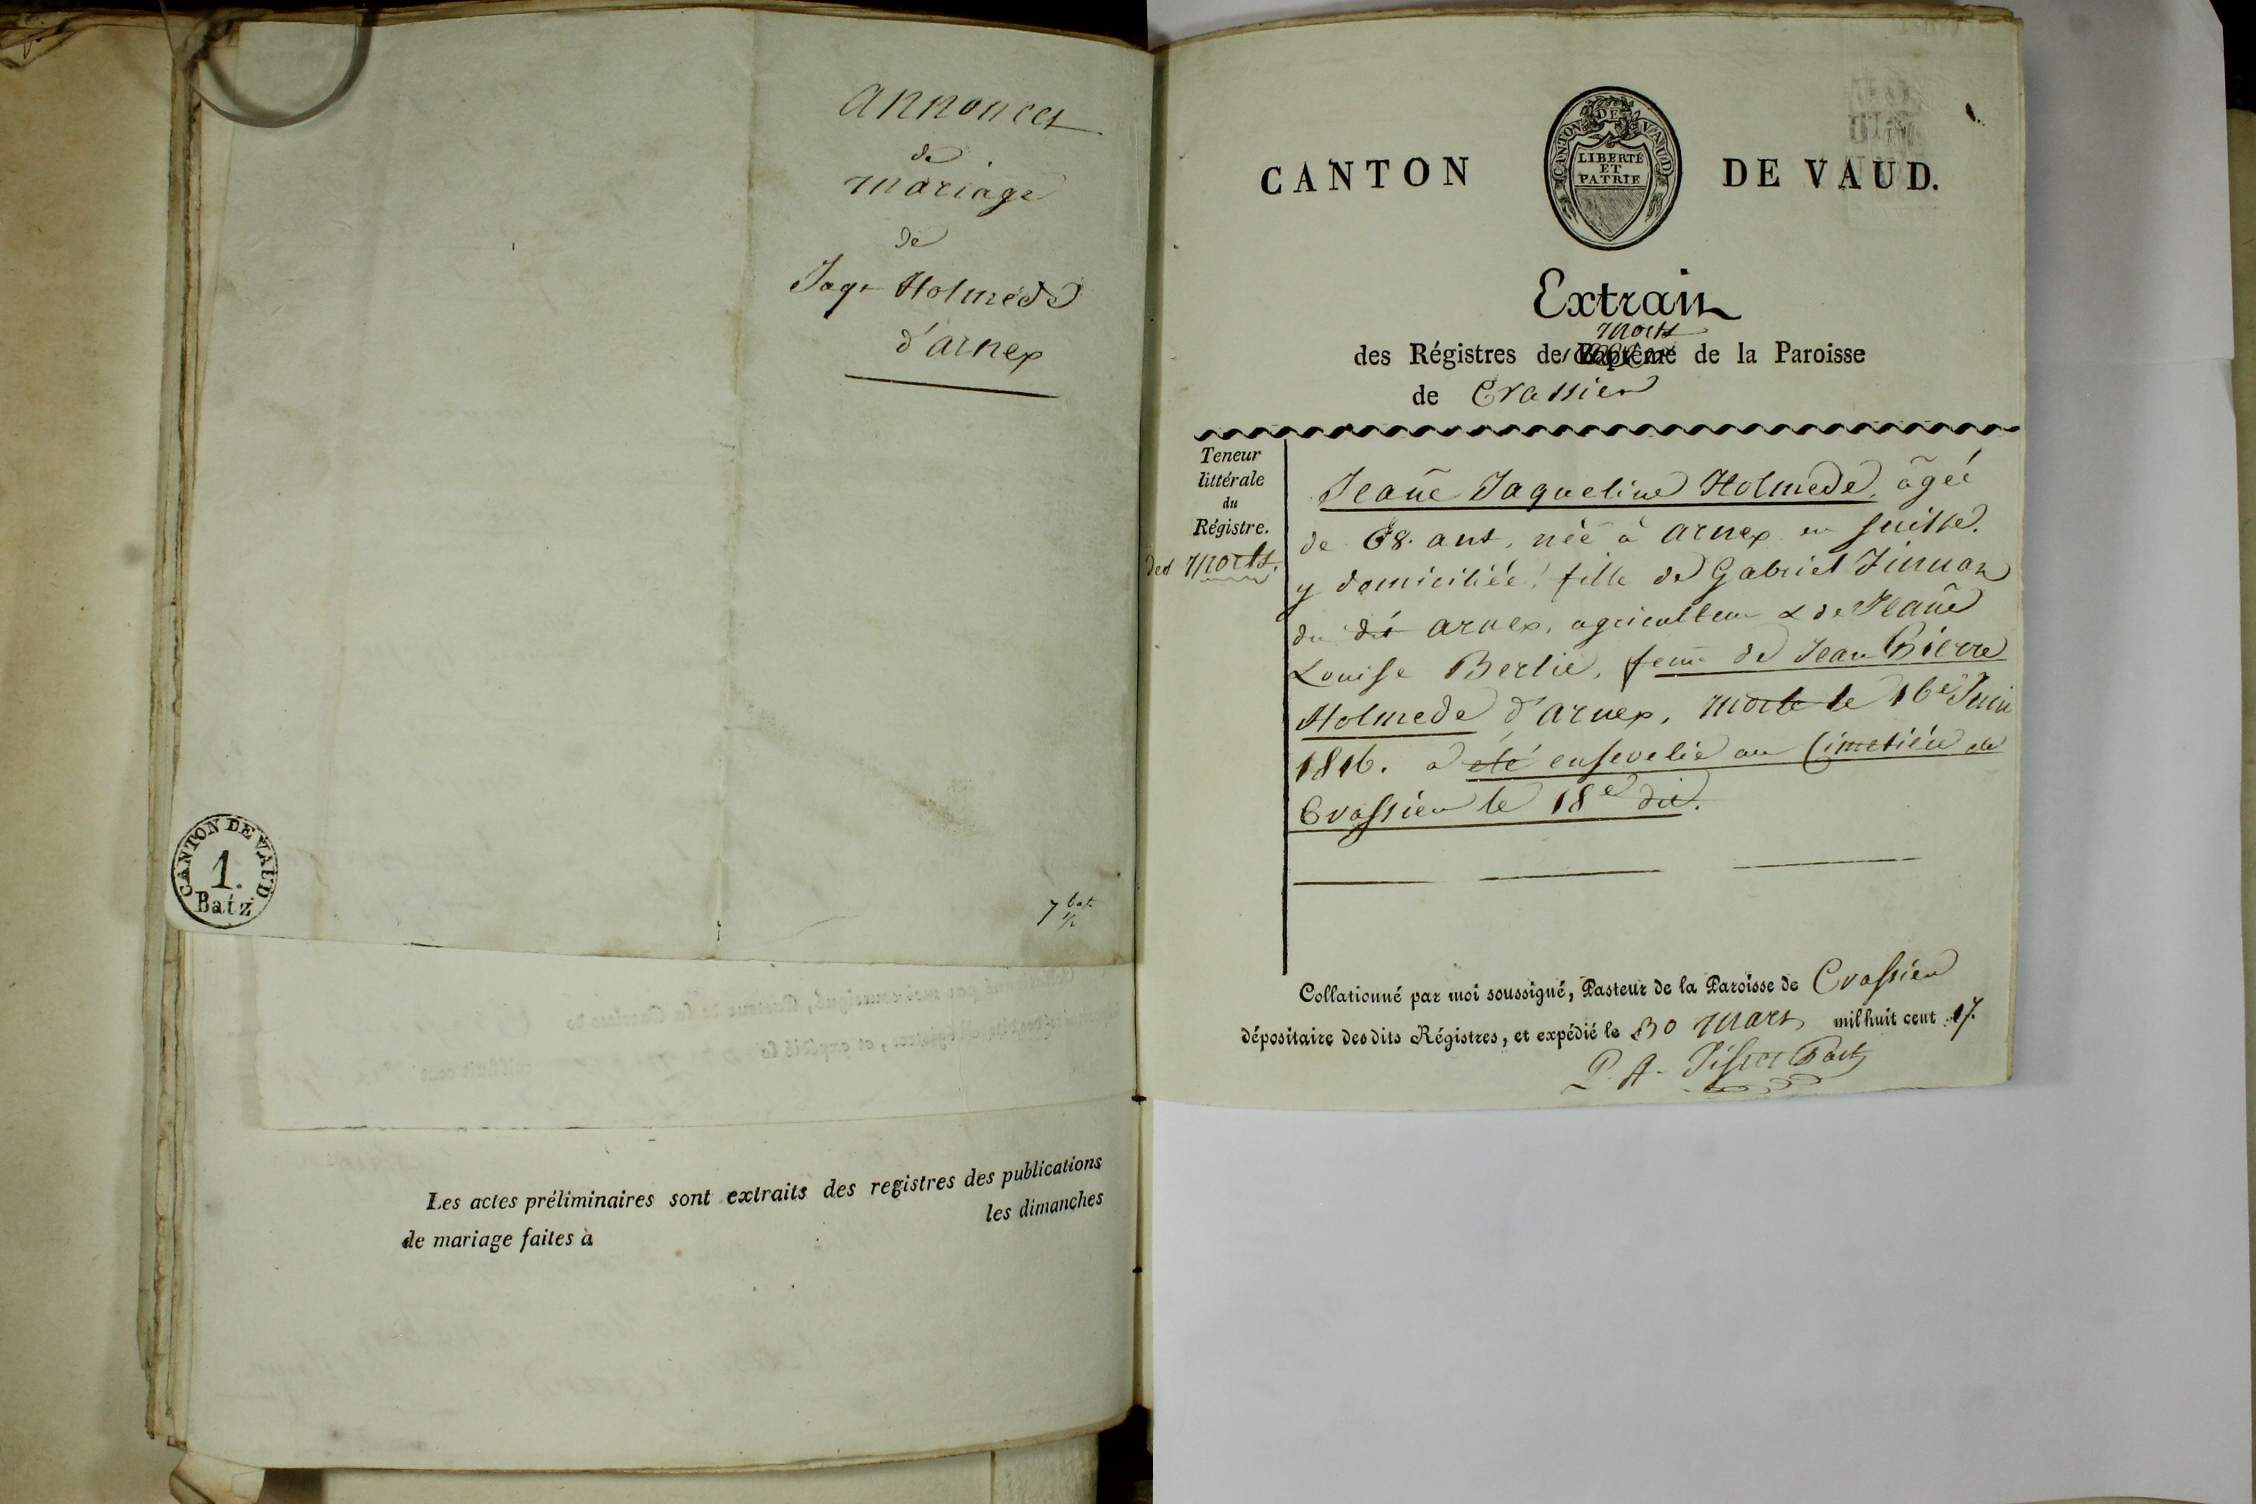 Annonces
de
mariage
de
Jaqe Holmede
d'arnex
CANTON DE VAUD
1.
Batz
7 bat. ½
Les actes préliminaires sont extraits des registres des publications
de mariage faites à les dimanches
CANTON DE VAUD.
CANTON DE VAUD
LIBERTÉ
ET
PATRIE
Extrait
morts
des Régistres de Baptême de la Paroisse
de Crassier
Teneur
littérale
du
Régistre.
des morts.
Jeañe Jaqueline Holmede, âgée
de 68. ans, née à arnex en Suisse.
y domiciliée, fille de Gabriel
du dit arnex, agriculteur & de Jeañe
Louise Bertie, fem̃e de Jean Pierre
Holmede d'arnex, morte le 16e Juin
1816. a été ensevelie au Cimetiére de
Crassier le 18e dit.
Collationné par moi soussigné, Pasteur de la Paroisse de Crassier
dépositaire desdits Régistres, et expédié le 30 mars mil huit cent 17.
P. A. Past